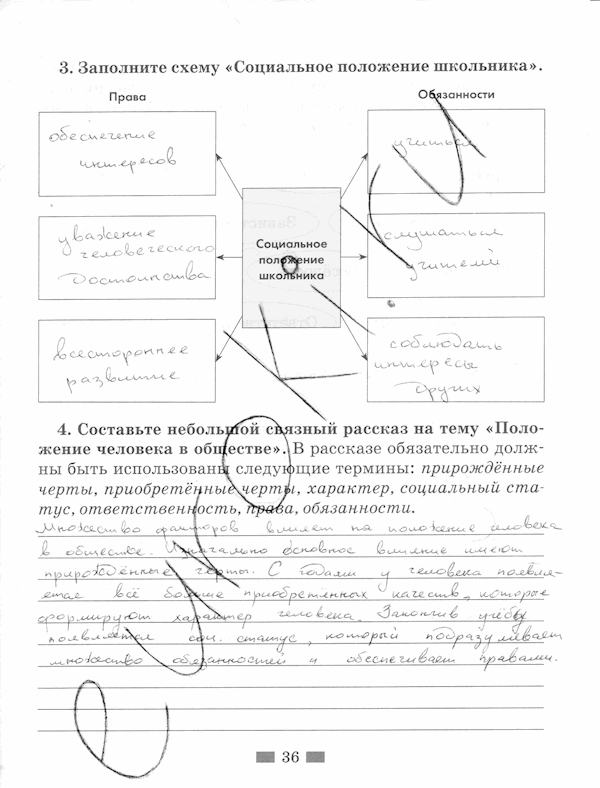 3. Заполните схему «Социальное положение школьника».
Права
Обязанности
обеспечение
интересов
учиться
уважение
человеческого
достоинства
Социальное
положение
школьника
слушаться
учителей
всестороннее
развитие
соблюдать
интересы
других
4. Составьте небольшой связный рассказ на тему «Поло-
жение человека в обществе». В рассказе обязательно долж-
ны быть использованы следующие термины: прирождённые
черты, приобретённые черты, характер, социальный ста-
тус, ответственность, права, обязанности.
Множество факторов влияет на положение человека
в обществе. Изначально основное влияние имеют
прирождённые черты. С годами у человека появля-
ется всё больше приобретенных качеств, которые
формируют характер человека. Закончив учёбу
появляется соц. статус, который подразумевает
множество обязанностей и обеспечивает правами.
36